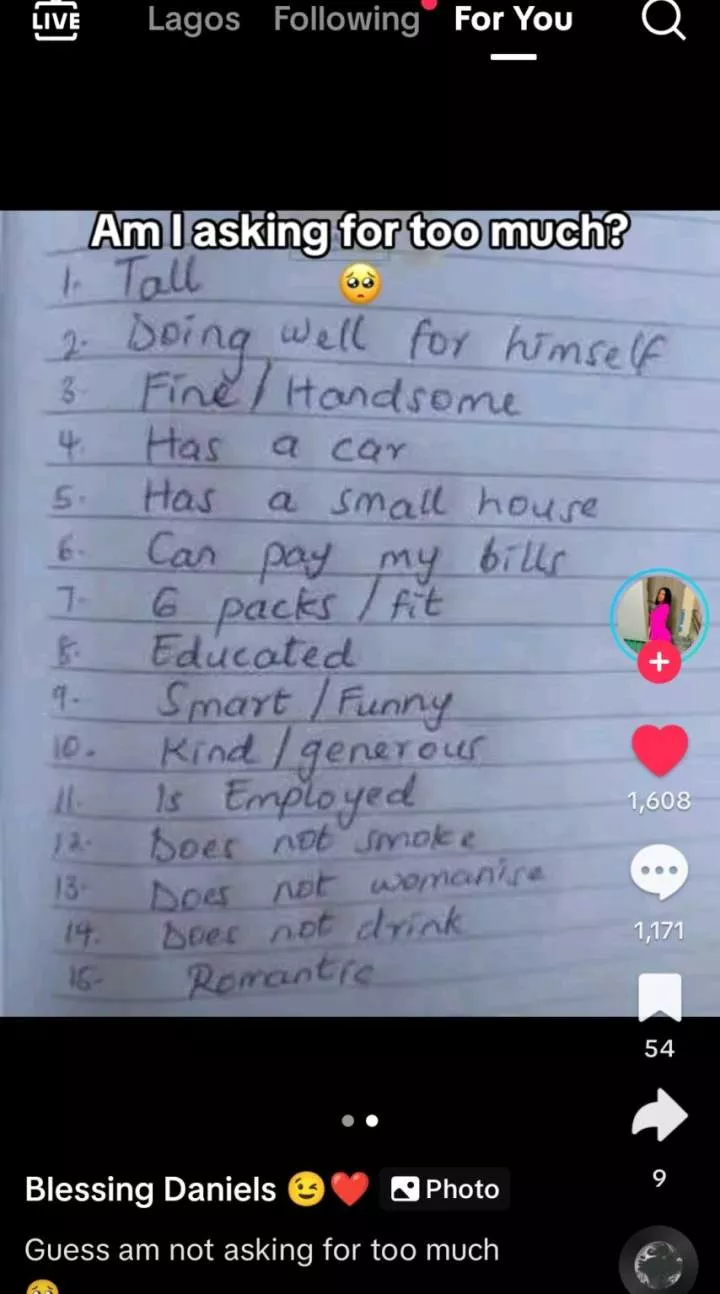 LIVE Lagos Following For You
Am I asking for too much?
🥺
1. Tall
2. Doing well for himself
3. Fine / Handsome
4. Has a car
5. Has a small house
6. Can pay my bills
7. 6 packs / fit
8. Educated
9. Smart / Funny
10. Kind / generous
11. Is Employed
12. Does not smoke
13. Does not womanise
14. Does not drink
15. Romantic
1,608
1,171
54
9
Blessing Daniels 😉❤️ Photo
Guess am not asking for too much